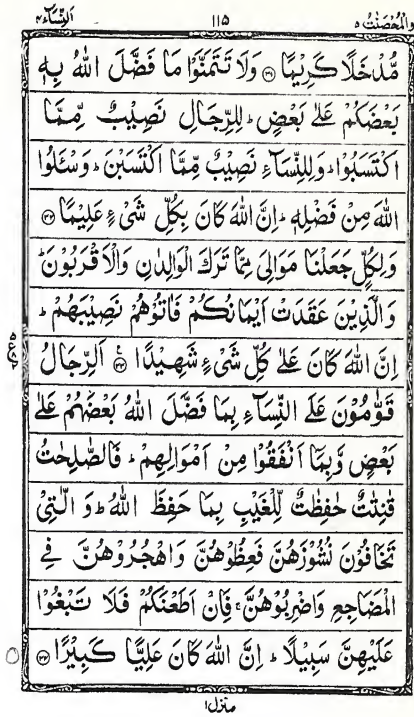 والمحصنت ٥ ١١٥ النسآء ٤
مُّدْخَلًا كَرِيْمًا ﴿۳۱﴾ وَلَا تَتَمَنَّوْا مَا فَضَّلَ اللّٰهُ بِهٖ
بَعْضَكُمْ عَلٰى بَعْضٍ ؕ لِلرِّجَالِ نَصِيْبٌ مِّمَّا
اكْتَسَبُوْا ؕ وَلِلنِّسَآءِ نَصِيْبٌ مِّمَّا اكْتَسَبْنَ ؕ وَسْـَٔلُوا
اللّٰهَ مِنْ فَضْلِهٖ ؕ اِنَّ اللّٰهَ كَانَ بِكُلِّ شَیْءٍ عَلِيْمًا ﴿۳۲﴾
وَلِكُلٍّ جَعَلْنَا مَوَالِیَ مِمَّا تَرَكَ الْوَالِدٰنِ وَالْاَقْرَبُوْنَ ؕ
وَالَّذِيْنَ عَقَدَتْ اَيْمَانُكُمْ فَاٰتُوْهُمْ نَصِيْبَهُمْ ؕ
اِنَّ اللّٰهَ كَانَ عَلٰى كُلِّ شَیْءٍ شَهِيْدًا ﴿۳۳﴾ اَلرِّجَالُ
قَوّٰمُوْنَ عَلَى النِّسَآءِ بِمَا فَضَّلَ اللّٰهُ بَعْضَهُمْ عَلٰى
بَعْضٍ وَّبِمَاۤ اَنْفَقُوْا مِنْ اَمْوَالِهِمْ ؕ فَالصّٰلِحٰتُ
قٰنِتٰتٌ حٰفِظٰتٌ لِّلْغَيْبِ بِمَا حَفِظَ اللّٰهُ ؕ وَ الّٰتِیْ
تَخَافُوْنَ نُشُوْزَهُنَّ فَعِظُوْهُنَّ وَاهْجُرُوْهُنَّ فِی
الْمَضَاجِعِ وَاضْرِبُوْهُنَّ ۚ فَاِنْ اَطَعْنَكُمْ فَلَا تَبْغُوْا
عَلَيْهِنَّ سَبِيْلًا ؕ اِنَّ اللّٰهَ كَانَ عَلِيًّا كَبِيْرًا ﴿۳۴﴾
منزل ١